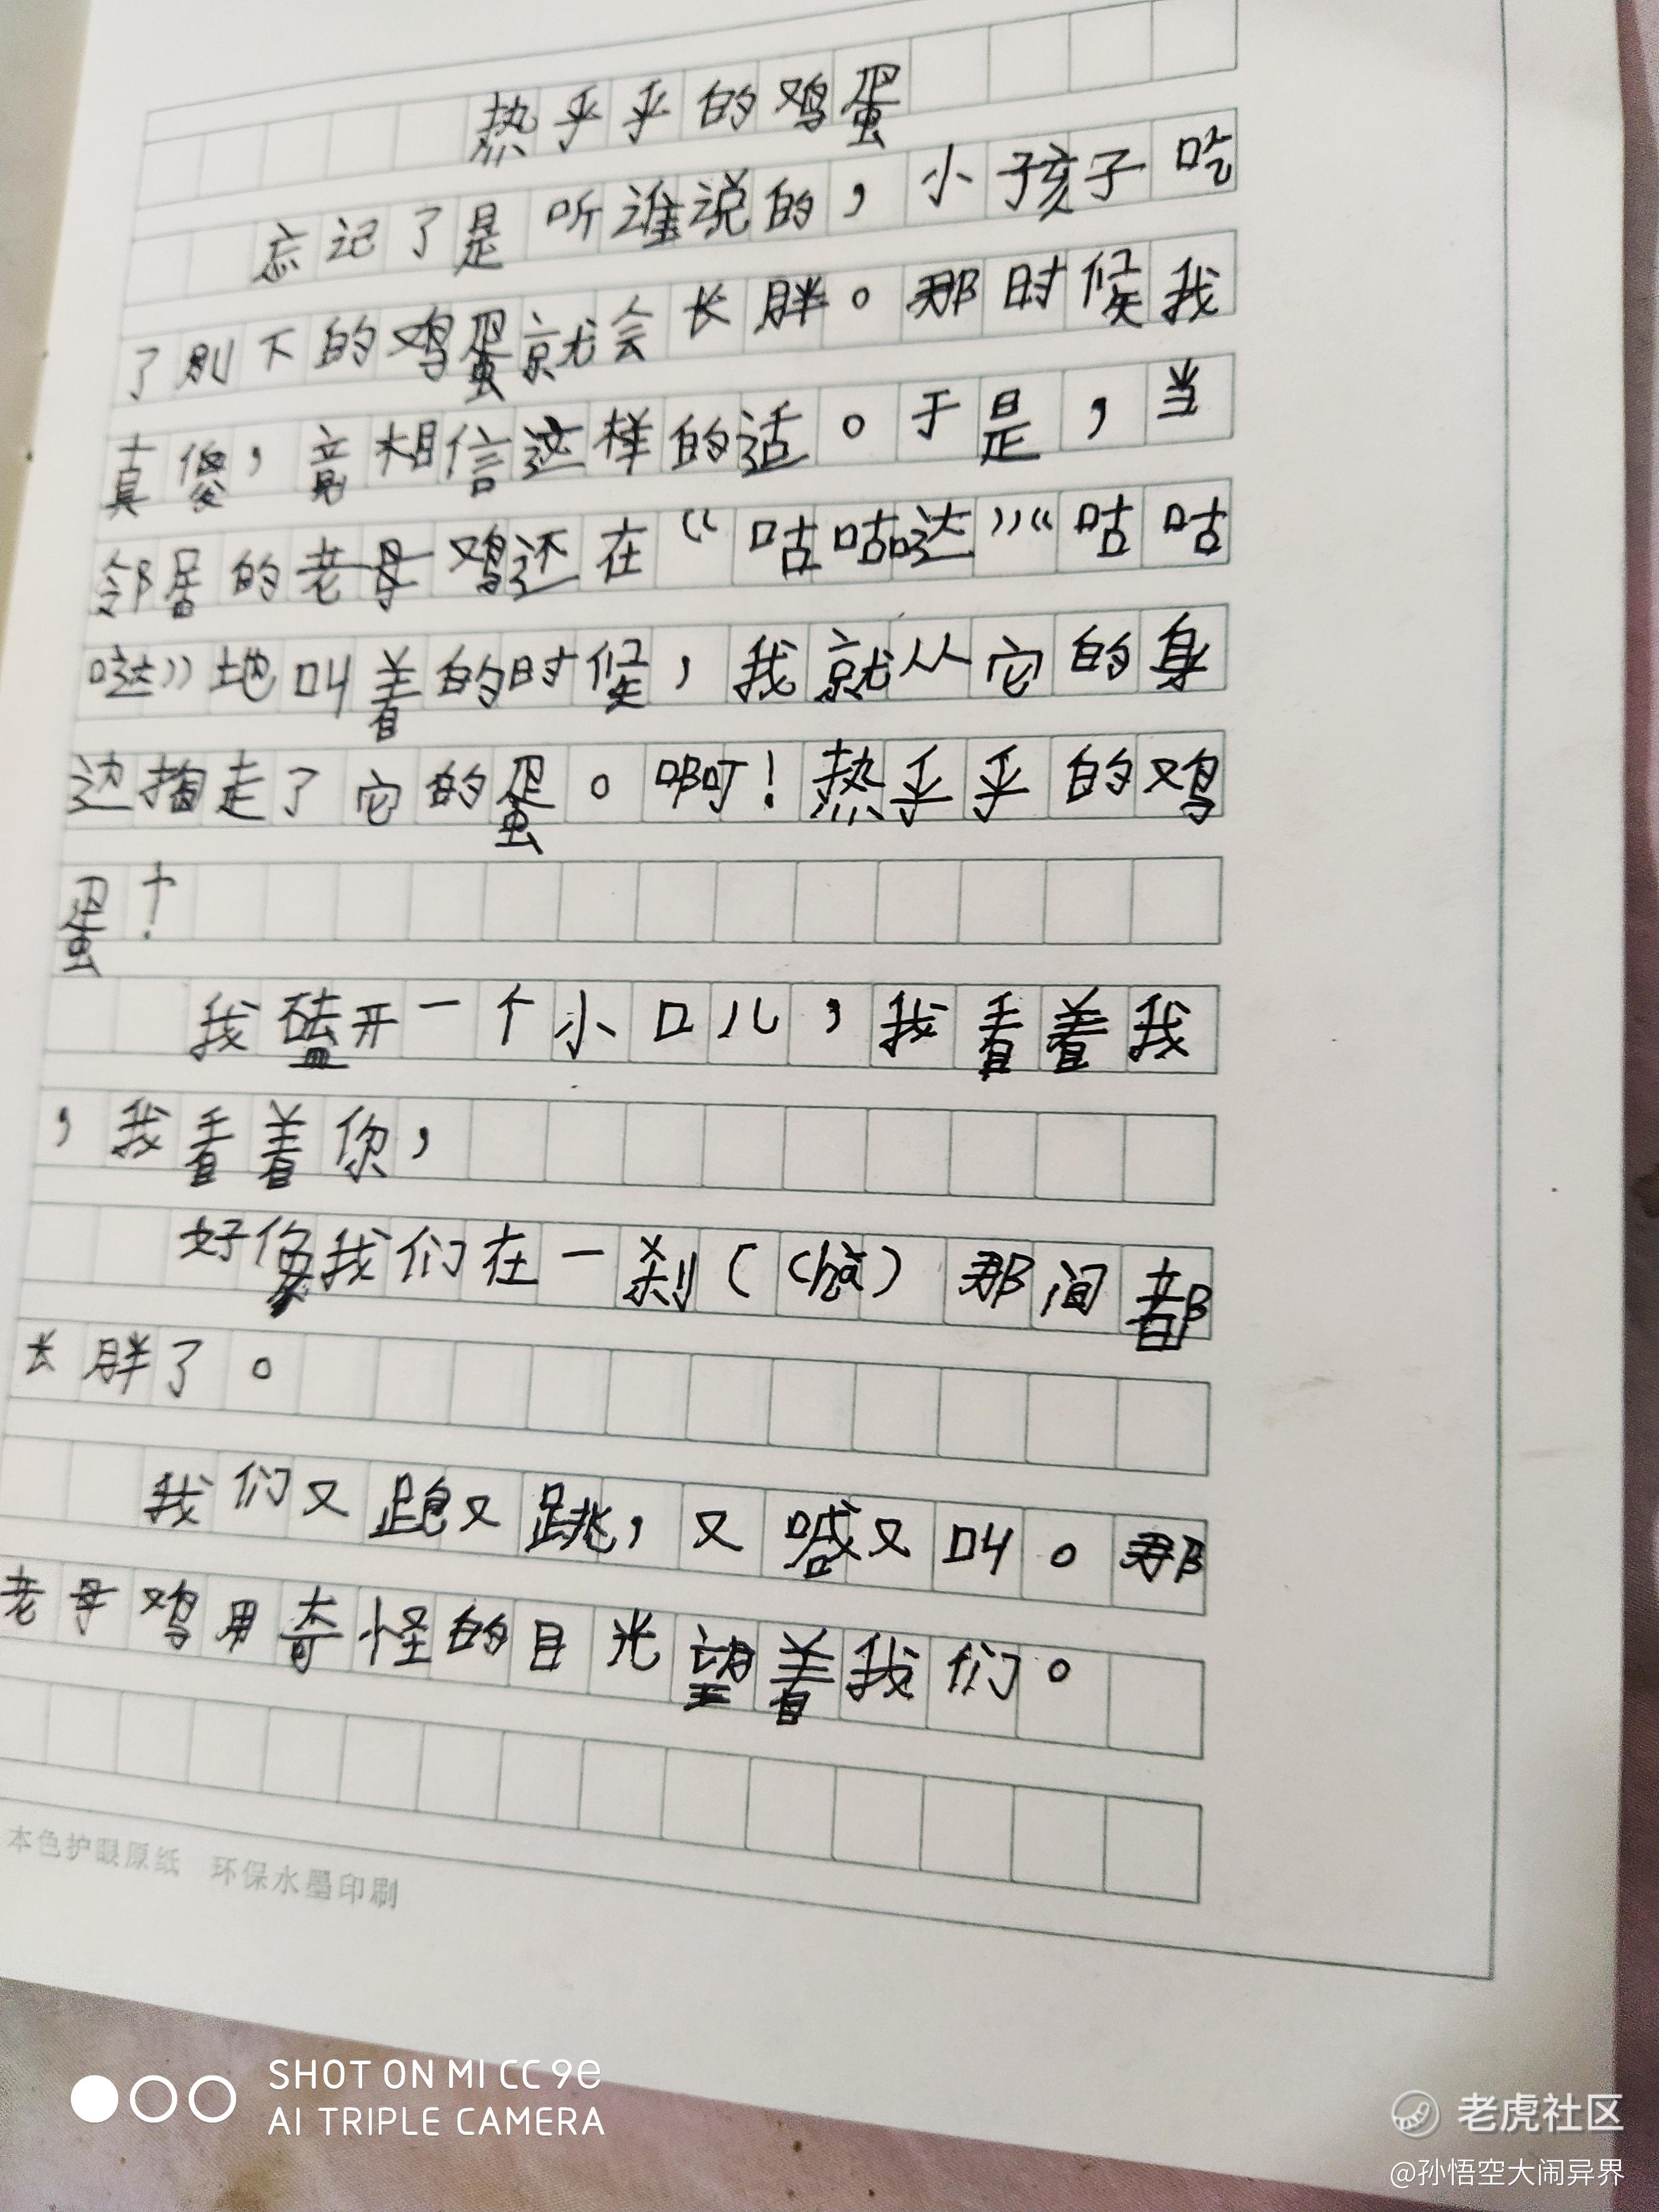 热乎乎的鸡蛋
忘记了是听谁说的，小孩子吃
了刚下的鸡蛋就会长胖。那时候我
真傻，竟相信这样的话。于是，当
邻居的老母鸡还在“咕咕哒”“咕咕
哒”地叫着的时候，我就从它的身
边掏走了它的蛋。啊！热乎乎的鸡
蛋！
我磕开一个小口儿，我看着我
，我看着你，
好像我们在一刹（chà）那间都
长胖了。
我们又跑又跳，又喊又叫。那
老母鸡用奇怪的目光望着我们。
本色护眼原纸 环保水墨印刷
SHOT ON MI CC 9e
AI TRIPLE CAMERA
老虎社区
@孙悟空大闹异界